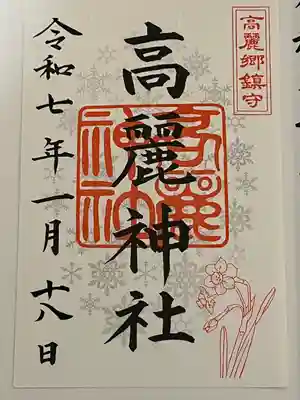 高麗郷鎮守
高麗神社
令和七年一月十八日
高麗神社